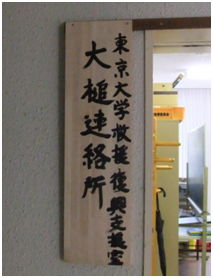 東京大学救援復興支援室
大槌連絡所